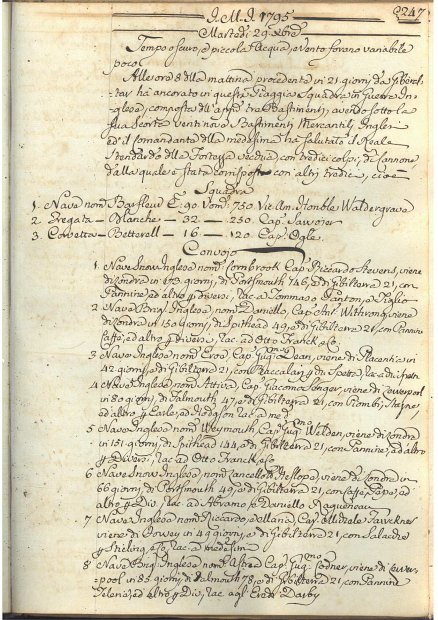 247
I.M.J. 1795
Martedì 29 Xbre
Tempo oscuro, e piccola Acqua, e Vento forano variabile
poco
All'esora 8 della mattina procedente in 21 giorni da Gibiter-
tar hà ancorato in questa Piaggia Squadra in Guerra In-
glese, composta dll' tre Bastimenti, avendo sotto la
sua Scorta vent nove Bastimenti Mercantili Inglesi
ed il Comandante dlla medesima ha salutato il Reale
Stendardo dlla Fortezza Vecchia con tredici colpi, di Cannone,
dalla quale è stato corrisposto con altri tredici, cioè
Squadra
1. Nave nomª Barfleur C. 90 Uomi. 750 Vie Am. Honble Waldergrave
2. Fregata — Blanche — 32 — 250 Cap. Sawojer
3. Corvetta — Betterell — 16 — 120 Cap. Ogle
Convojo
1 Nave Snow Inglesa nomª Cornbrook Cap. Riccardo Stevens, viene
di Londra in giorni, di Portsmouth 46, e di Gibilterra 21, con
Pannine, ed altro p diversi, rac. a Tommaso Panton, e Figlio
2 Nave Brig. Inglesa, nomª Daniello, Cap. Withrong, viene
di Londra in 150 giorni, di Spithead 49, e di Gibilterra 21, con Pannine
Caffè, ed altro p diversi, rac. ad Otto Franck, e Co
3 Nave Inglesa nomª Cap. Gugmo Dean, viene di Placentia in
42 giorni, e di Gibilterra 21, con Baccalari, rac. ad
4 Nave Inglesa nomª Attiva, Cap. Giacomo Songer, viene di Liverpool
in 80 giorni, di Falmouth 47, e di Gibilterra 21, con Piombi, Stagne
ed altro, p Earle, ed Hodgson rac. a med.
5 Nave Inglesa nomª Weymouth, Cap. Gugmo Welden, viene di Londra
in 151 giorni, di Spithead 144, e di Gibilterra 21, con Pannine, ed altro
p Diversi, rac. ad Otto Franck, e Co
6 Nave Snow Inglesa, nomª Cancellott Heslops, viene di Londra in
66 giorni, di Portsmouth 49, e di Gibilterra 21, con Caffè, Pape, ed
altro p Div., rac. ad Abramo, e Daniello Ragueneau
7 Nave Inglesa nomª Riccardo, ed Ellana, Cap. Tawckner
viene di Fowey in 49 giorni, e di Gibilterra 21, con Salacche
p Stirling, e Co, rac. a medesimi
8 Nave Brig. Inglesa nomª Astrea Cap. Gugmo Codner, viene di Liver-
pool in 85 giorni, di Falmouth 78, e di Gibilterra 21, con Pannine
Telerie, ed altro p Div., rac. agl' Eredi Darby